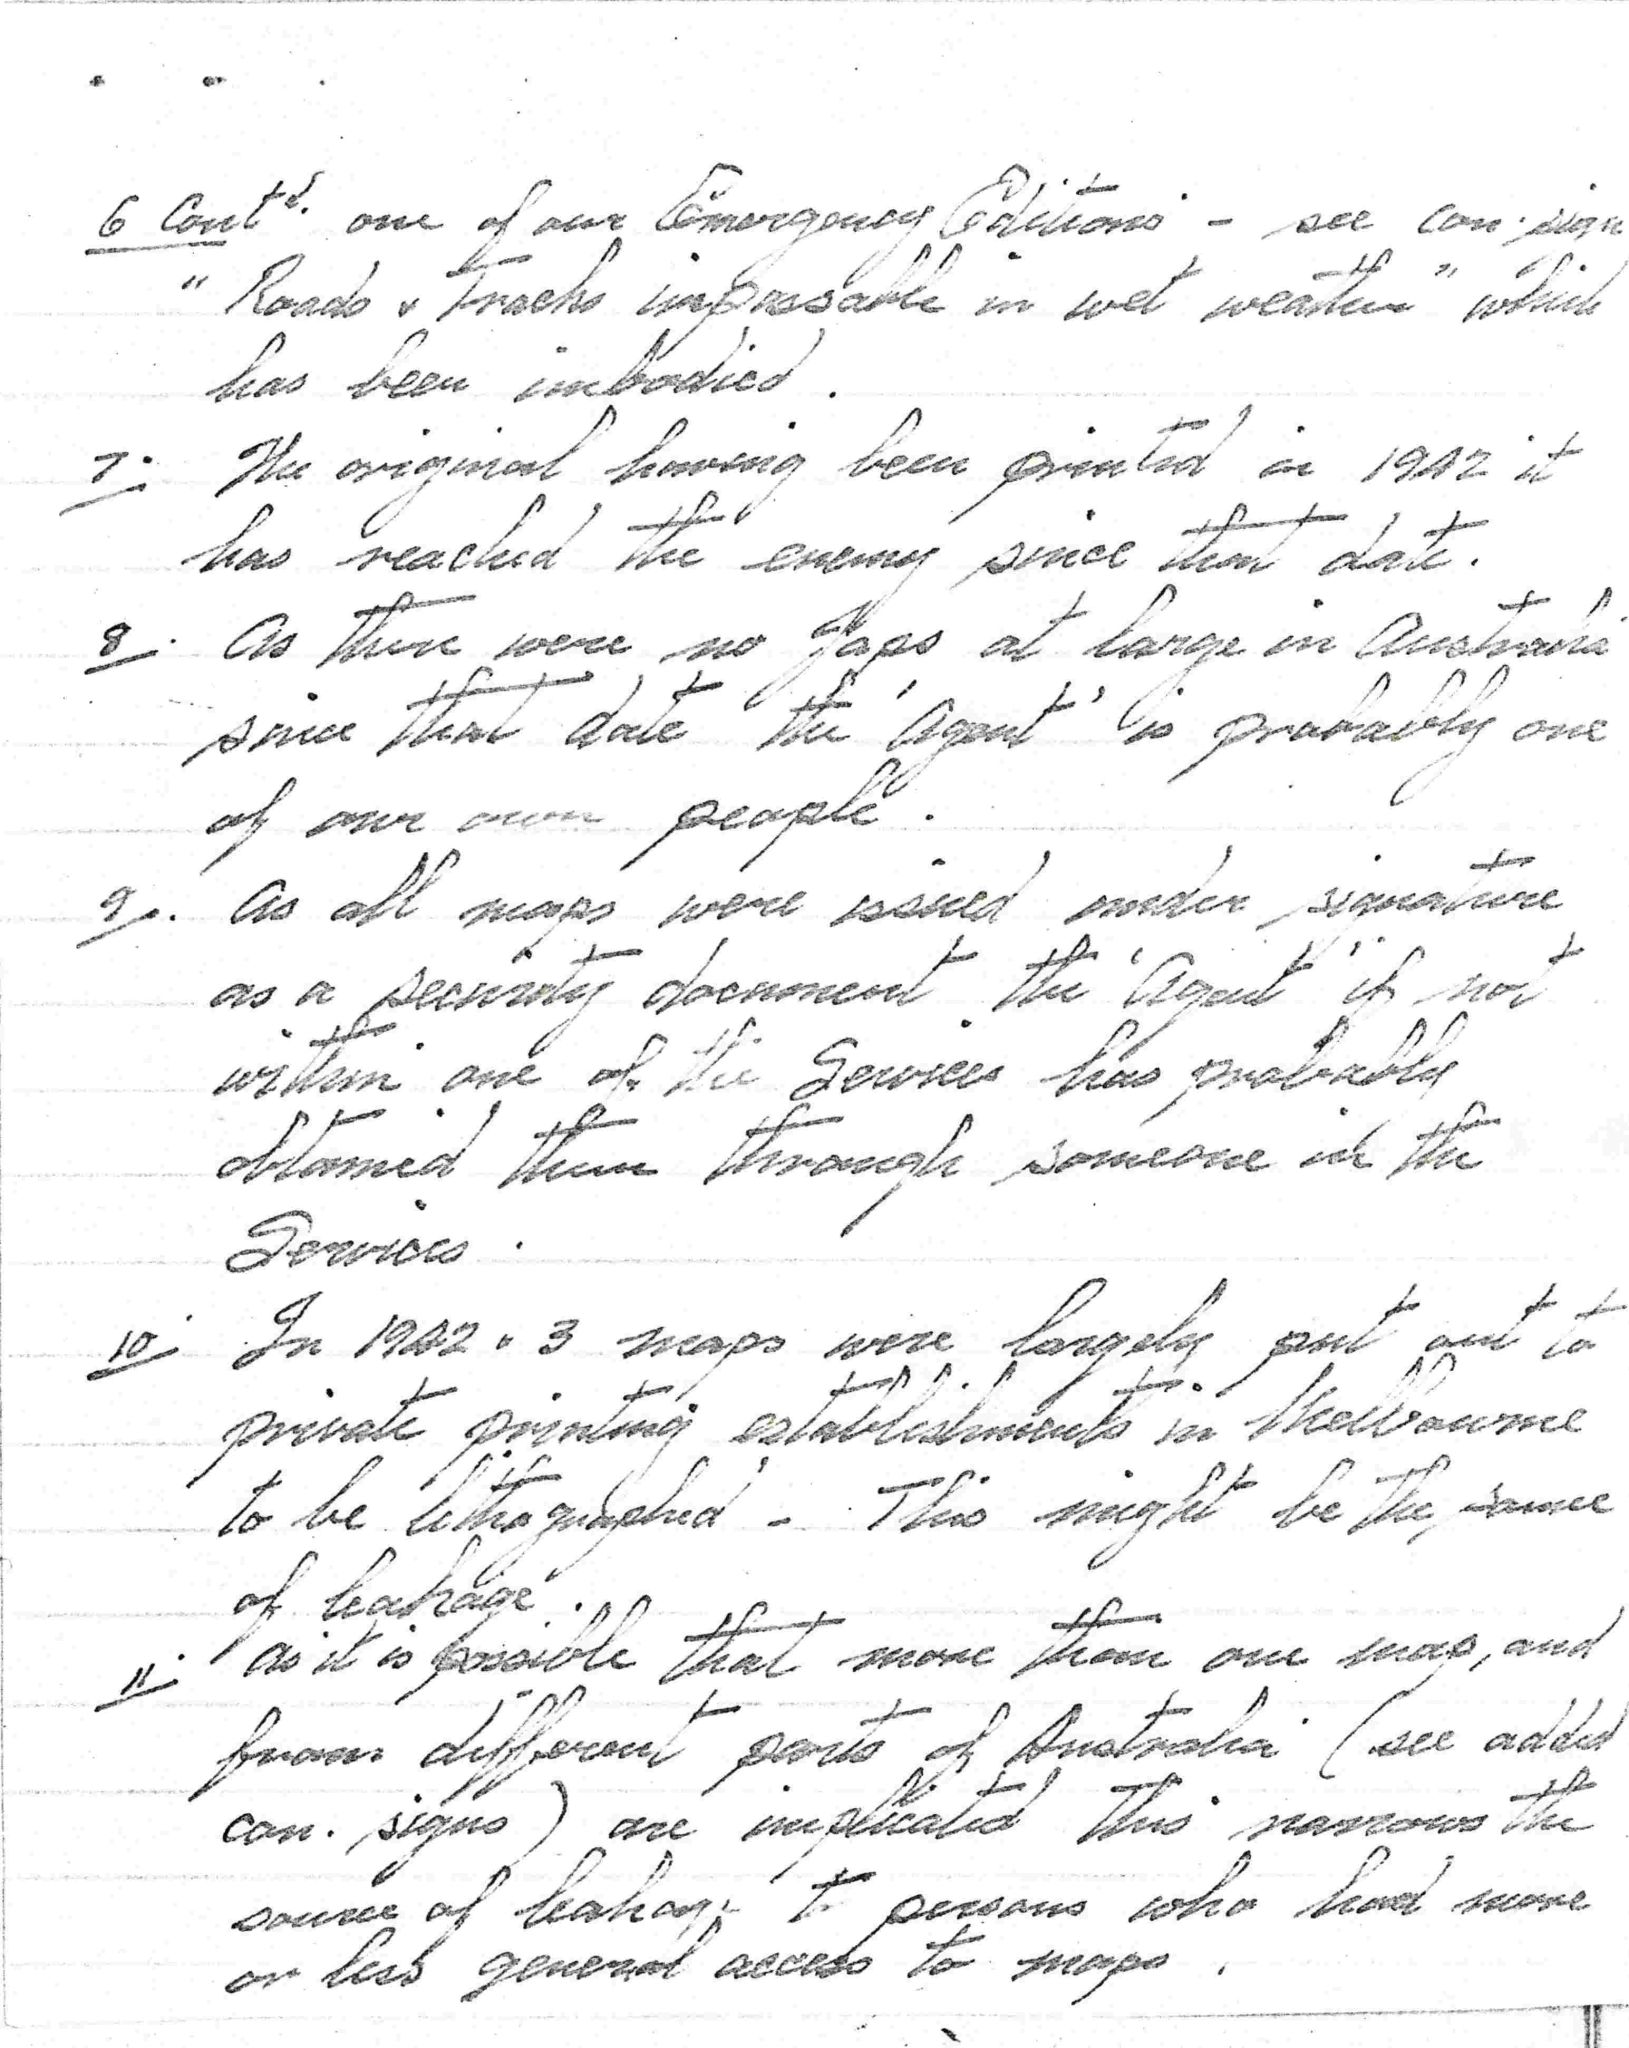 6 Contd. one of our Emergency Editions - see con. sign
" Roads & Tracks impassable in wet weather" which
has been imbodied.
7. The original having been printed in 1942 it
has reached the enemy since that date.
8. As there were no Japs at large in Australia
since that date the 'Agent' is probably one
of our own people.
9. As all maps were issued under signature
as a security document the 'Agent' if not
within one of the Services has probably
obtained them through someone in the
Services.
10. In 1942 & 3 maps were largely put out to
private printing establishments in Melbourne
to be lithographed - This might be the source
of leakage.
11. As it is possible that more than one map, and
from different parts of Australia (see added
con. signs) are implicated this narrows the
source of leakage to persons who had more
or less general access to maps.